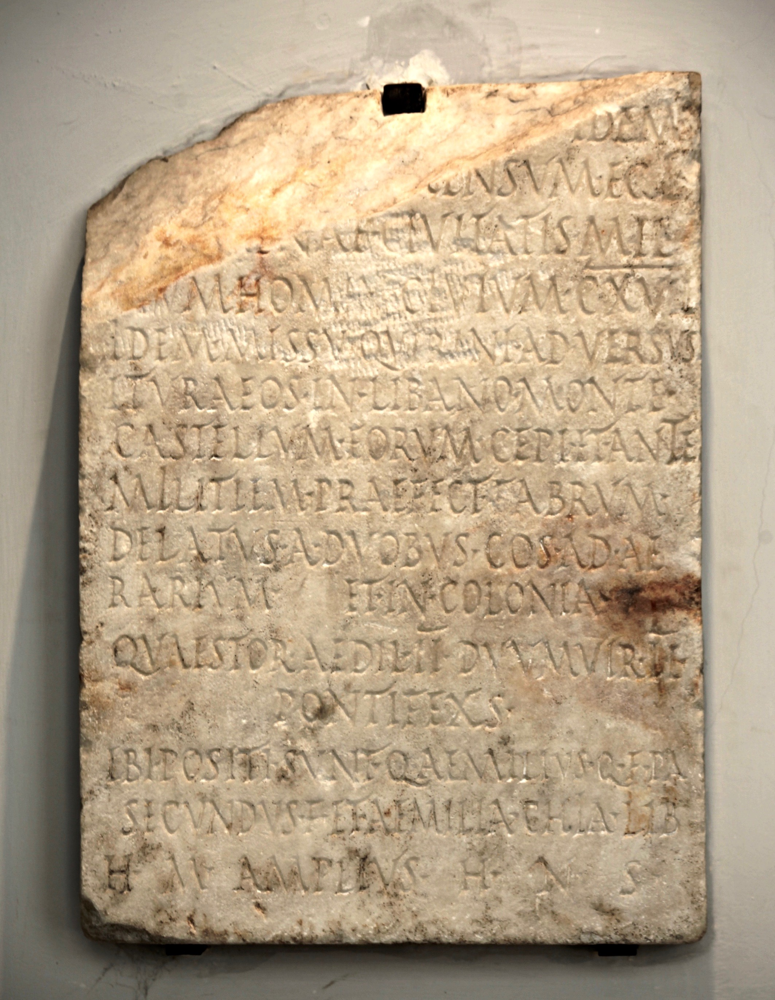 IDEM
CENSVM·EGI
NAE·CIVITATIS MIL
HOM CIVIVM·CXVII
IDEM·MISSV·QVIRINI·ADVERSVS
ITVRAEOS·IN·LIBANO·MONTE·
CASTELLVM·EORVM·CEPI·ET·ANTE
MILITIEM·PRAEFECT·FABRVM·
DELATVS·A·DVOBVS·COS·AD·AE
RARIVM ET·IN·COLONIA·
QVAESTOR·AEDIL·II·DVVMVIR·II
PONTIFEXS·
IBI·POSITI·SVNT·Q·AEMILIVS·Q·F·PAL
SECVNDVS·F·ET·AEMILIA·CHIA·LIB
H M AMPLIVS H N S